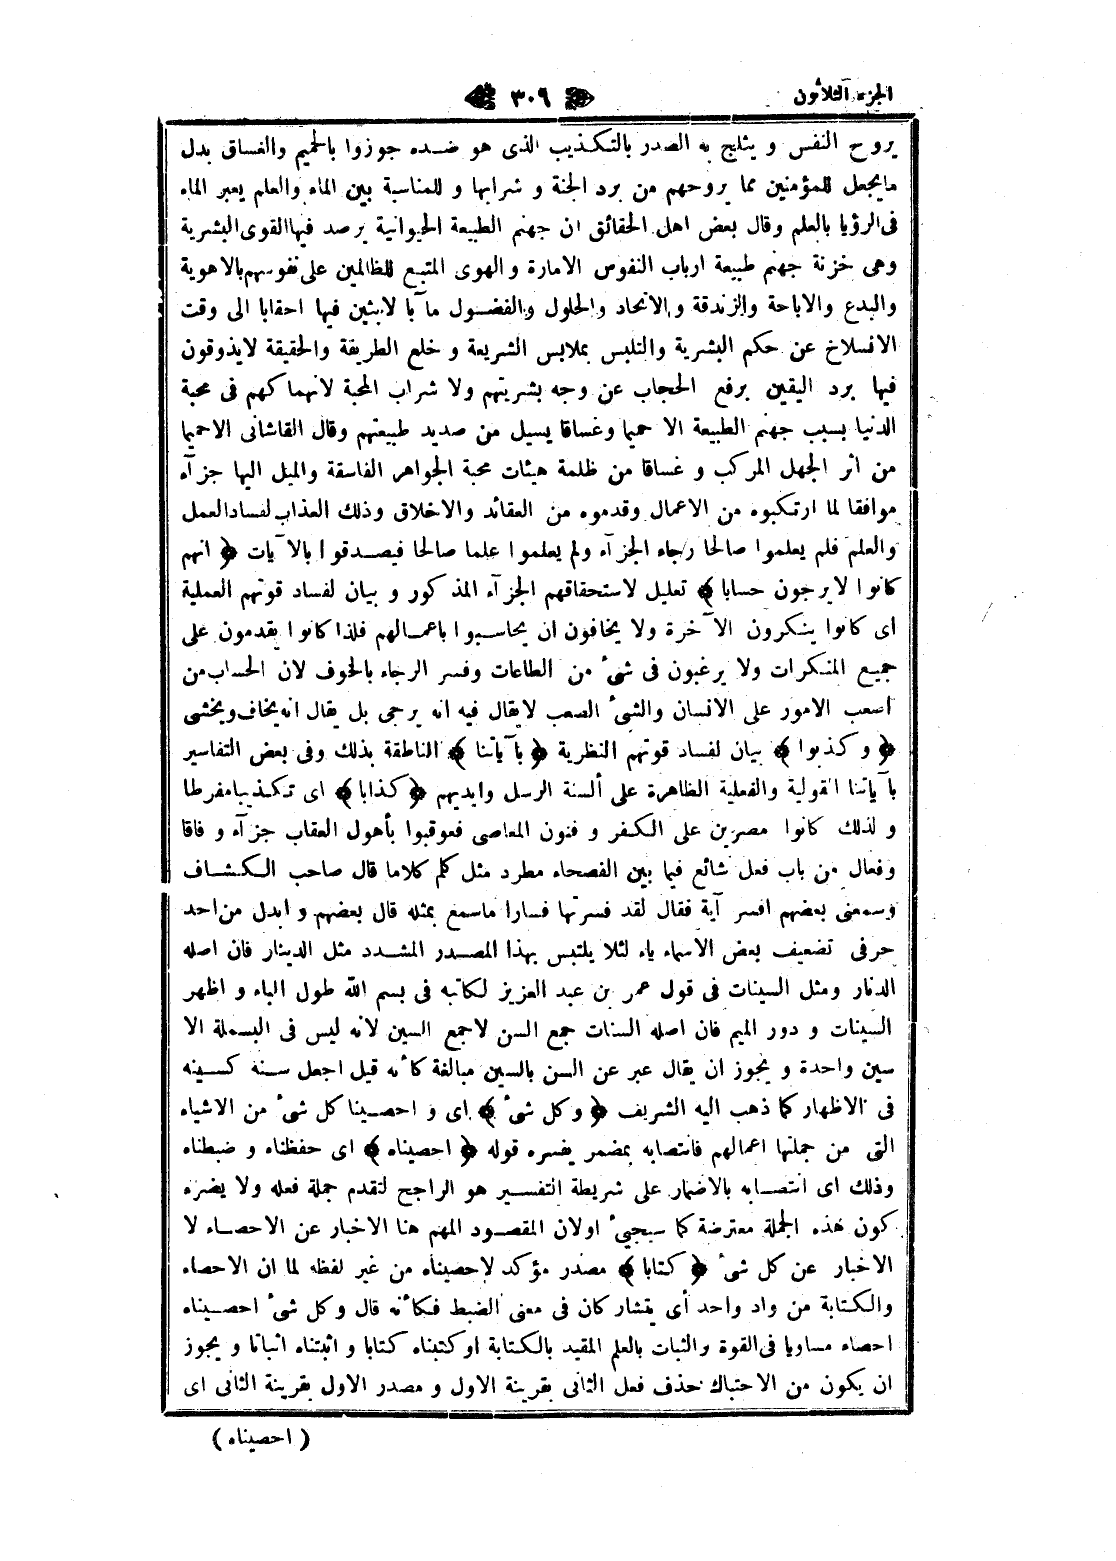 الجزء الثلاثون
٣٠٦
يروح النفس و يثلج به الصدر بالتكذيب الذى هو ضده جوزوا بالحميم والغساق بدل
مايجعل للمؤمنين مما يروحهم من برد الجنة و شرابها و للمناسبة بين الماء والعلم يعبر الماء
فى الرؤيا بالعلم وقال بعض اهل الحقائق ان جهنم الطبيعة الحيوانية يرصد فيها القوى البشرية
وهى خزنة جهنم طبيعة ارباب النفوس الامارة و الهوى المتبع للظالمين على نفوسهم بالاهوية
والبدع والاباحة والزندقة و الاتحاد والحلول والفضول مآبا لابثين فيها احقابا الى وقت
الانسلاخ عن حكم البشرية والتلبس بملابس الشريعة و خلع الطريقة والحقيقة لايذوقون
فيها برد اليقين برفع الحجاب عن وجه بشريتهم ولا شراب المحبة لانهماكهم فى محبة
الدنيا بسبب جهنم الطبيعة الا حميما وغساقا يسيل من صديد طبيعتهم وقال القاشانى الاحميما
من اثر الجهل المركب و غساقا من ظلمة هيئات محبة الجواهر الفاسقة والميل اليها جزآء
موافقا لما ارتكبوه من الاعمال وقدموه من العقائد والاخلاق وذلك العذاب لفسادالعمل
والعلم فلم يعلموا صالحا رجاء الجزآء ولم يعلموا علما صالحا فيصدقوا بالآيات ﴿ انهم
كانوا لايرجون حسابا ﴾ تعليل لاستحقاقهم الجزآء المذكور و بيان لفساد قوتهم العملية
اى كانوا ينكرون الآخرة ولا يخافون ان يحاسبوا باعمالهم فلذا كانوا يقدمون على
جميع المنكرات ولا يرغبون فى شىء من الطاعات وفسر الرجاء بالخوف لان الحساب من
اصعب الامور على الانسان والشىء الصعب لايقال فيه انه يرجى بل يقال انه يخاف ويخشى
﴿ وكذبوا ﴾ بيان لفساد قوتهم النظرية ﴿ بآياتنا ﴾ الناطقة بذلك وفى بعض التفاسير
بآياتنا القولية والفعلية الظاهرة على ألسنة الرسل وايديهم ﴿ كذابا ﴾ اى تكذيبا مفرطا
و لذلك كانوا مصرين على الكفر و فنون المعاصى فعوقبوا بأهول العقاب جزآء و فاقا
وفعال من باب فعل شائع فيما بين الفصحاء مطرد مثل كلم كلاما قال صاحب الكشاف
وسمعنى بعضهم افسر آية فقال لقد فسرتها فسارا ماسمع بمثله قال بعضهم و ابدل من احد
حرفى تضعيف بعض الاسماء ياء لئلا يلتبس بهذا المصدر المشدد مثل الدينار فان اصله
الدنار ومثل السينات فى قول عمر بن عبد العزيز لكاتبه فى بسم الله طول الباء و اظهر
السينات و دور الميم فان اصله السنات جمع السن لاجمع السين لانه ليس فى البسملة الا
سين واحدة و يجوز ان يقال عبر عن السن بالسين مبالغة كأنه قيل اجعل سنه كسينه
فى الاظهار كما ذهب اليه الشريف ﴿ وكل شىء ﴾ اى و احصينا كل شىء من الاشياء
التى من جملتها اعمالهم فانتصابه بمضمر يفسره قوله ﴿ احصيناه ﴾ اى حفظناه و ضبطناه
وذلك اى انتصابه بالاضمار على شريطة التفسير هو الراجح لتقدم جملة فعله ولا يضره
كون هذه الجملة معترضة كما سيجىء اولان المقصود المهم هنا الاخبار عن الاحصاء لا
الاخبار عن كل شىء ﴿ كتابا ﴾ مصدر مؤكد لاحصيناه من غير لفظه لما ان الاحصاء
والكتابة من واد واحد أى يتشاركان فى معنى الضبط فكأنه قال وكل شىء احصيناه
احصاء مساويا فى القوة والثبات بالعلم المقيد بالكتابة اوكتبناه كتابا و اثبتناه اثباتا و يجوز
ان يكون من الاحتباك حذف فعل الثانى بقرينة الاول و مصدر الاول بقرينة الثانى اى
( احصيناه )